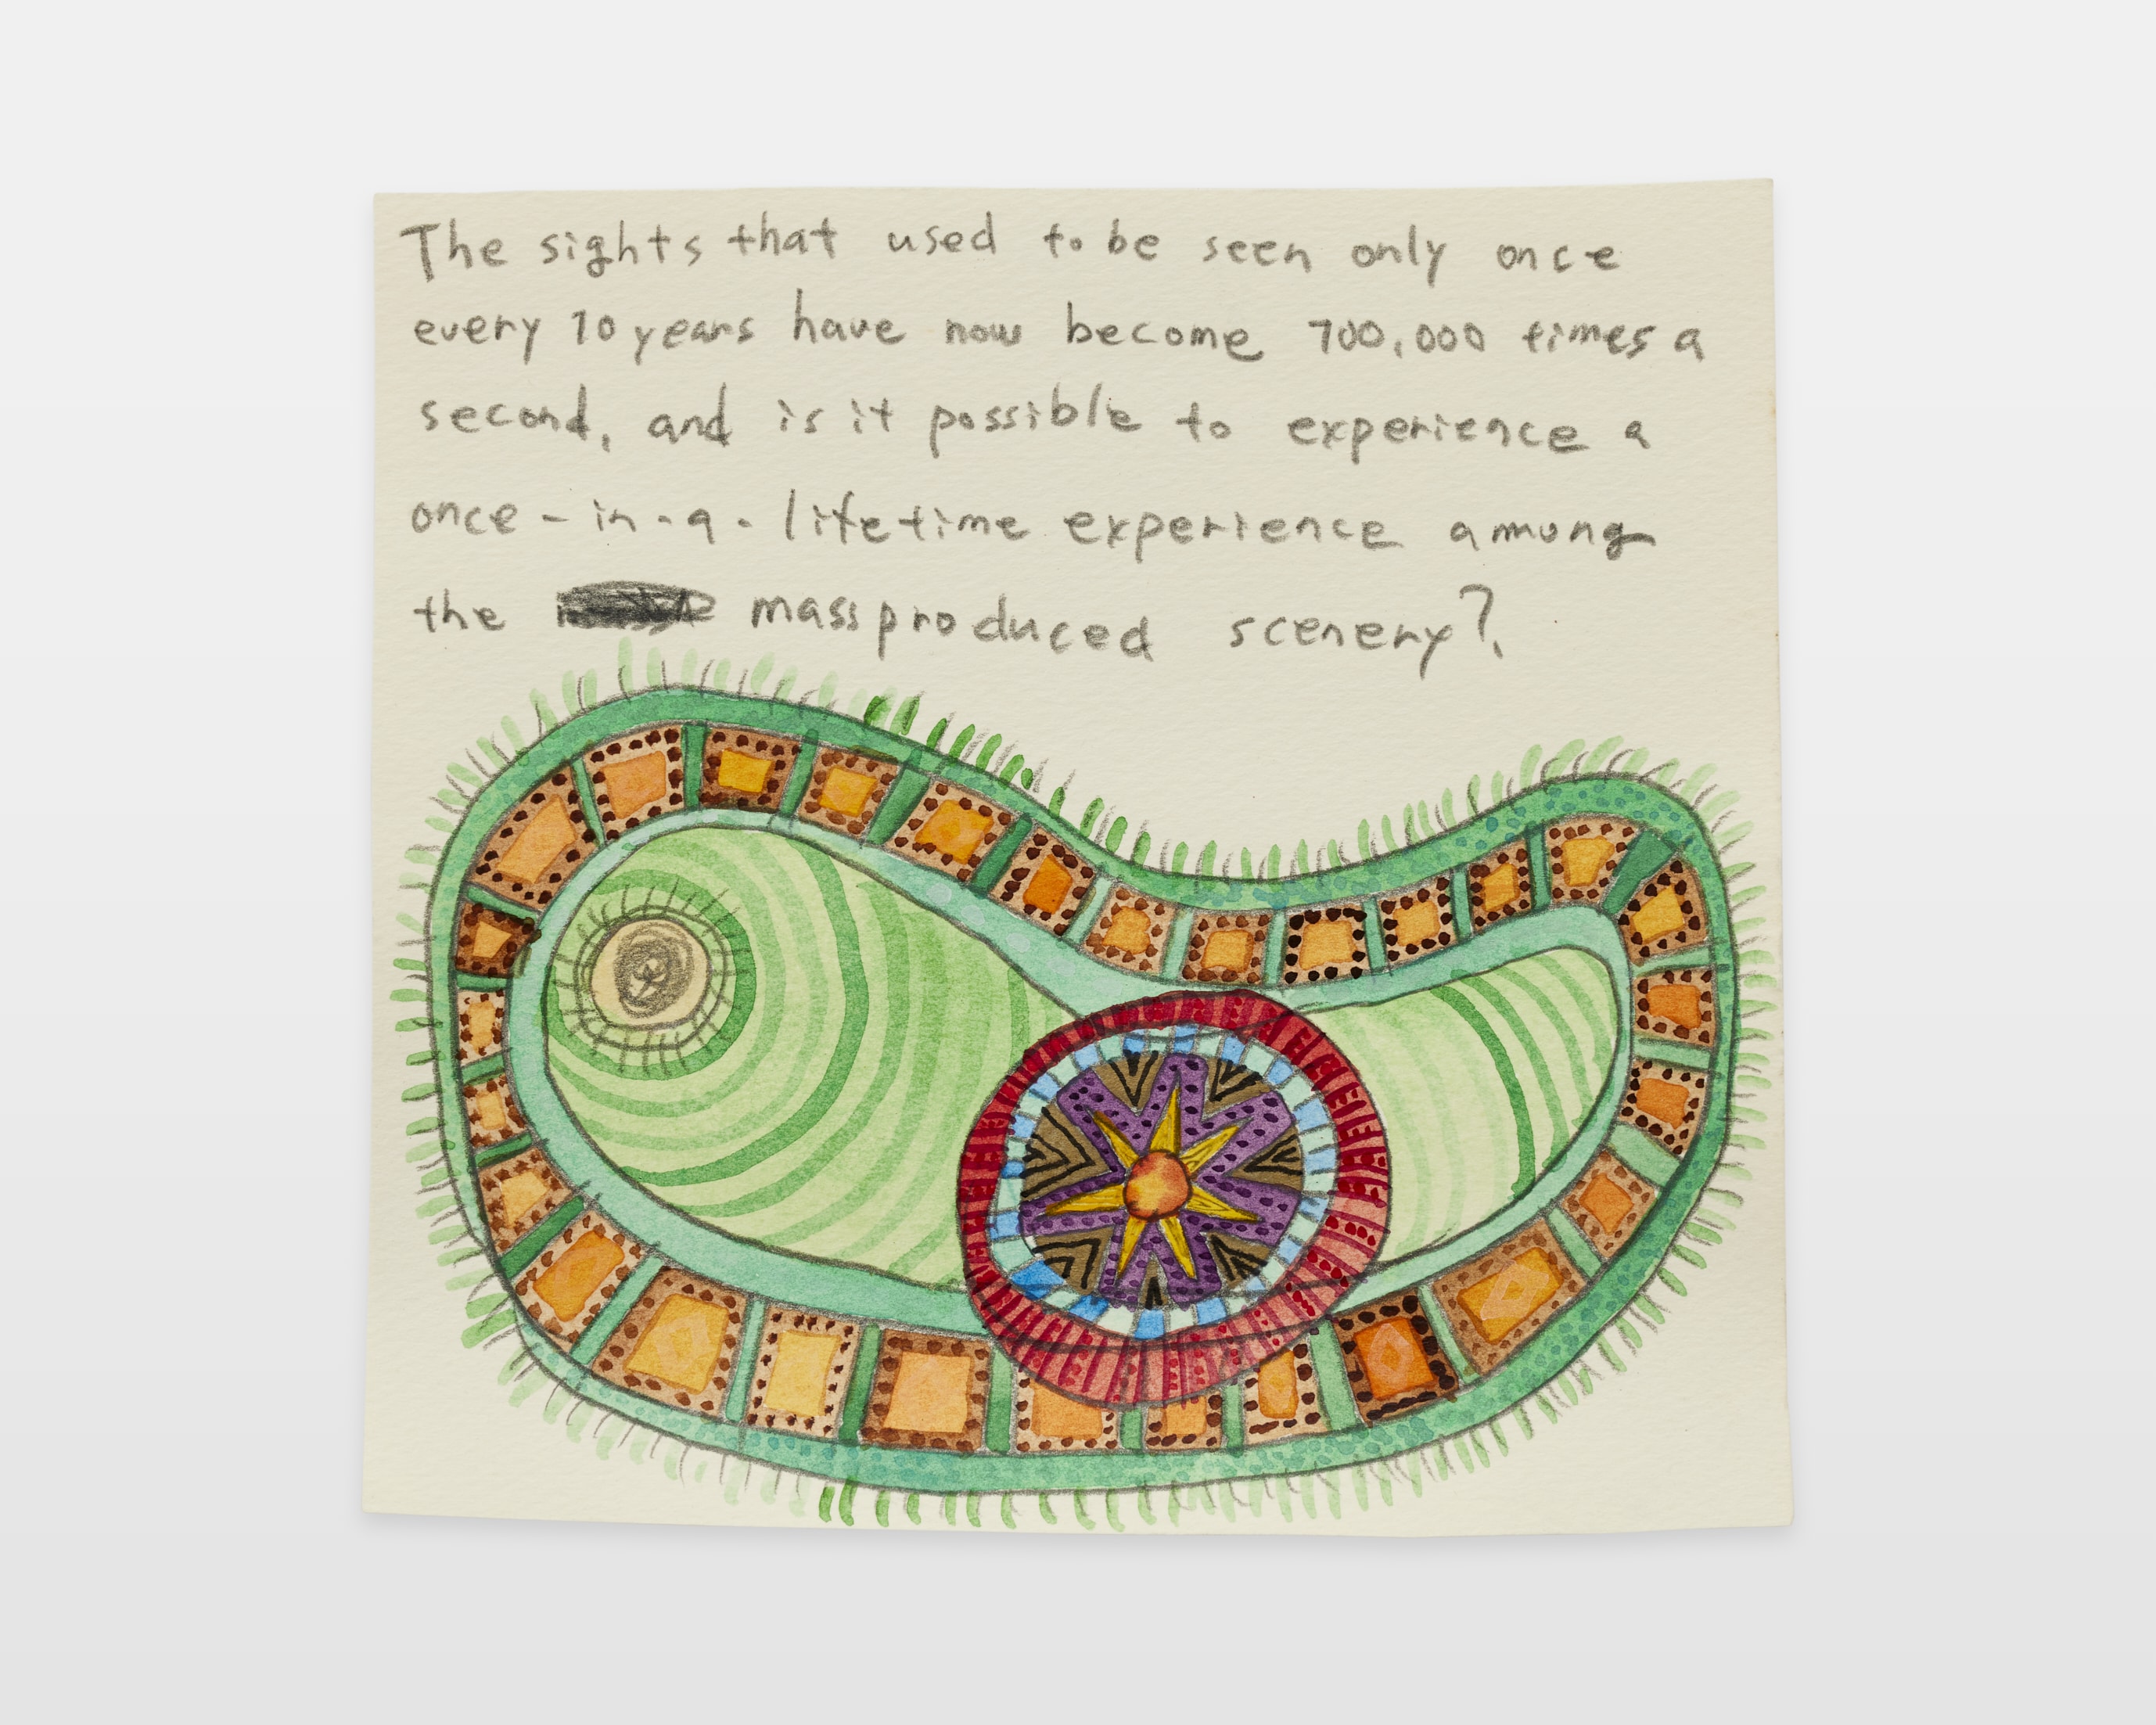 The sights that used to be seen only once
every 10 years have now become 700,000 times a
second, and is it possible to experience a
once-in-a-lifetime experience among
the mass produced scenery?